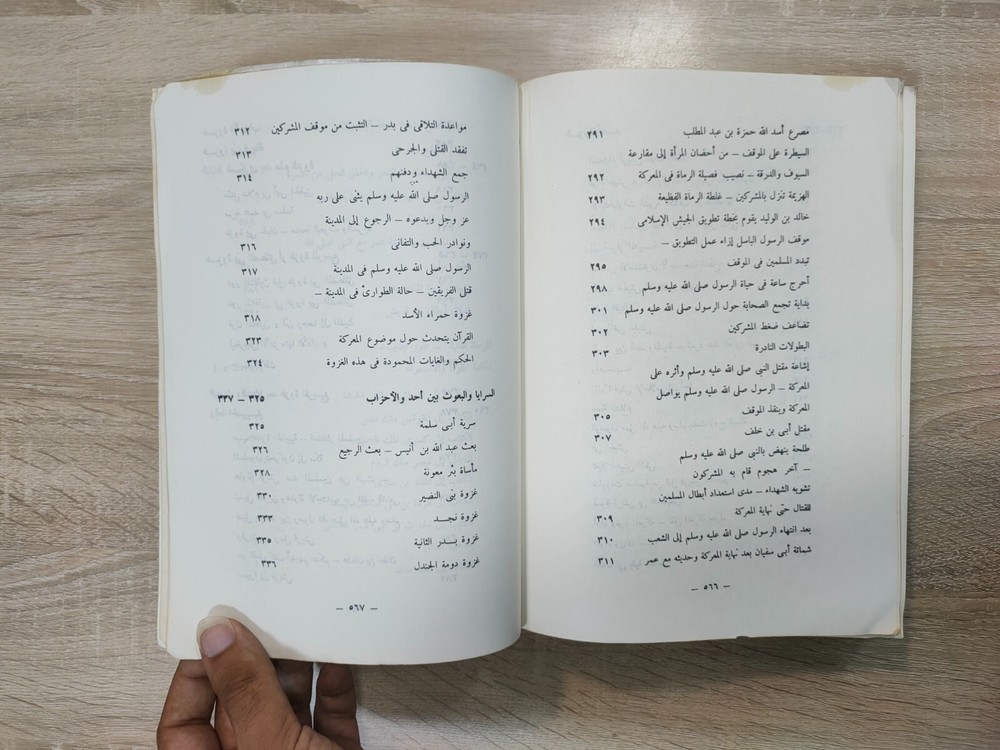 مصرع أسد الله حمزة بن عبد المطلب ٢٩١
السيطرة على الموقف – من أحضان المرأة إلى مقارعة
السيوف والدرقة – نصيب فصيلة الرماة فى المعركة ٢٩٢
الهزيمة تنزل بالمشركين – غلطة الرماة الفظيعة ٢٩٣
خالد بن الوليد يقوم بخطة تطويق الجيش الإسلامى ٢٩٤
موقف الرسول الباسل إزاء عمل التطويق –
تبدد المسلمين فى الموقف ٢٩٥
أحرج ساعة فى حياة الرسول صلى الله عليه وسلم ٢٩٨
بداية تجمع الصحابة حول الرسول صلى الله عليه وسلم ٣٠١
تضاعف ضغط المشركين ٣٠٢
البطولات النادرة ٣٠٣
إشاعة مقتل النبى صلى الله عليه وسلم وأثره على
المعركة – الرسول صلى الله عليه وسلم يواصل
المعركة وينقذ الموقف ٣٠٥
مقتل أبى بن خلف ٣٠٧
طلحة ينهض بالنبى صلى الله عليه وسلم
– آخر هجوم قام به المشركون
تشويه الشهداء – مدى استعداد أبطال المسلمين
للقتال حتى نهاية المعركة ٣٠٩
بعد انتهاء الرسول صلى الله عليه وسلم إلى الشعب ٣١٠
شماتة أبى سفيان بعد نهاية المعركة وحديثه مع عمر ٣١١
– ٥٦٦ –
مواعدة التلاقى فى بدر – التثبت من موقف المشركين ٣١٢
تفقد القتلى والجرحى ٣١٣
جمع الشهداء ودفنهم ٣١٤
الرسول صلى الله عليه وسلم يثنى على ربه
عز وجل ويدعوه – الرجوع إلى المدينة
ونوادر الحب والتفانى ٣١٦
الرسول صلى الله عليه وسلم فى المدينة ٣١٧
قتلى الفريقين – حالة الطوارئ فى المدينة –
غزوة حمراء الأسد ٣١٨
القرآن يتحدث حول موضوع المعركة ٣٢٣
الحكم والغايات المحمودة فى هذه الغزوة ٣٢٤
السرايا والبعوث بين أحد والأحزاب ٣٢٥ – ٣٣٧
سرية أبى سلمة ٣٢٥
بعث عبد الله بن أنيس – بعث الرجيع ٣٢٦
مأساة بئر معونة ٣٢٨
غزوة بنى النضير ٣٣٠
غزوة نجـد ٣٣٣
غزوة بـدر الثانية ٣٣٥
غزوة دومة الجندل ٣٣٦
– ٥٦٧ –